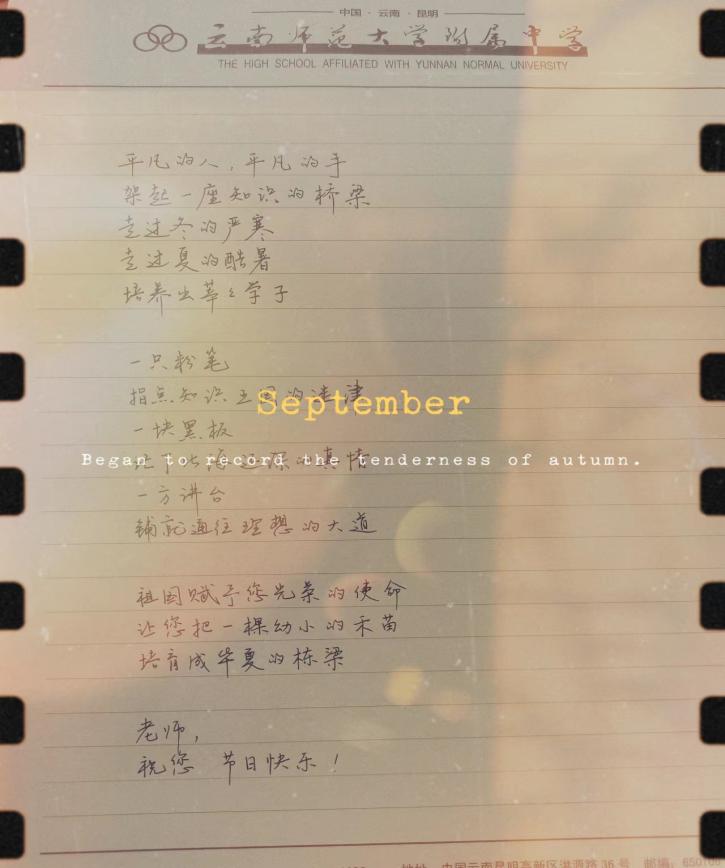 中国·云南·昆明
云南师范大学附属中学
THE HIGH SCHOOL AFFILIATED WITH YUNNAN NORMAL UNIVERSITY
平凡的人,平凡的手
架起一座知识的桥梁
走过冬的严寒
走过夏的酷暑
培养出莘々学子
一只粉笔
指点知识王国的迷津
September
一块黑板
Began to record the tenderness of autumn.
比海还深的真情
一方讲台
铺就通往理想的大道
祖国赋予您光荣的使命
让您把一棵幼小的禾苗
培育成华夏的栋梁
老师,
祝您 节日快乐!
地址:中国云南昆明高新区洪源路36号 邮编:650106